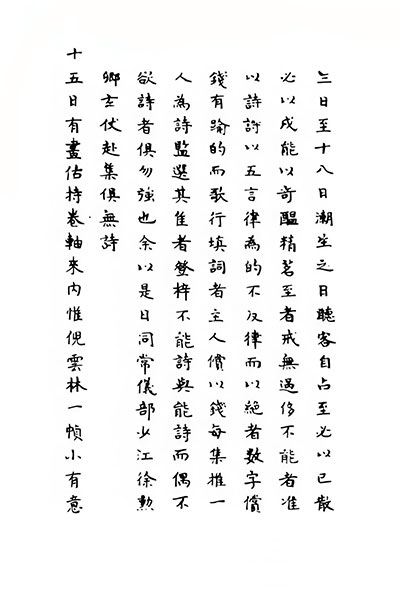 三日至十八日潮生之日聽客自占至必以已散
必以戌能以奇醞精茗至者戒無過侈不能者准
以詩詩以五言律為的不及律而以絕者數字償
錢有踰的而歌行填詞者主人償以錢每集推一
人為詩監選其佳者登梓不能詩與能詩而偶不
欲詩者俱勿強也余以是日同常儀部少江徐勳
卿玄仗赴集俱無詩
十五日有畫估持卷軸來內惟倪雲林一幀小有意